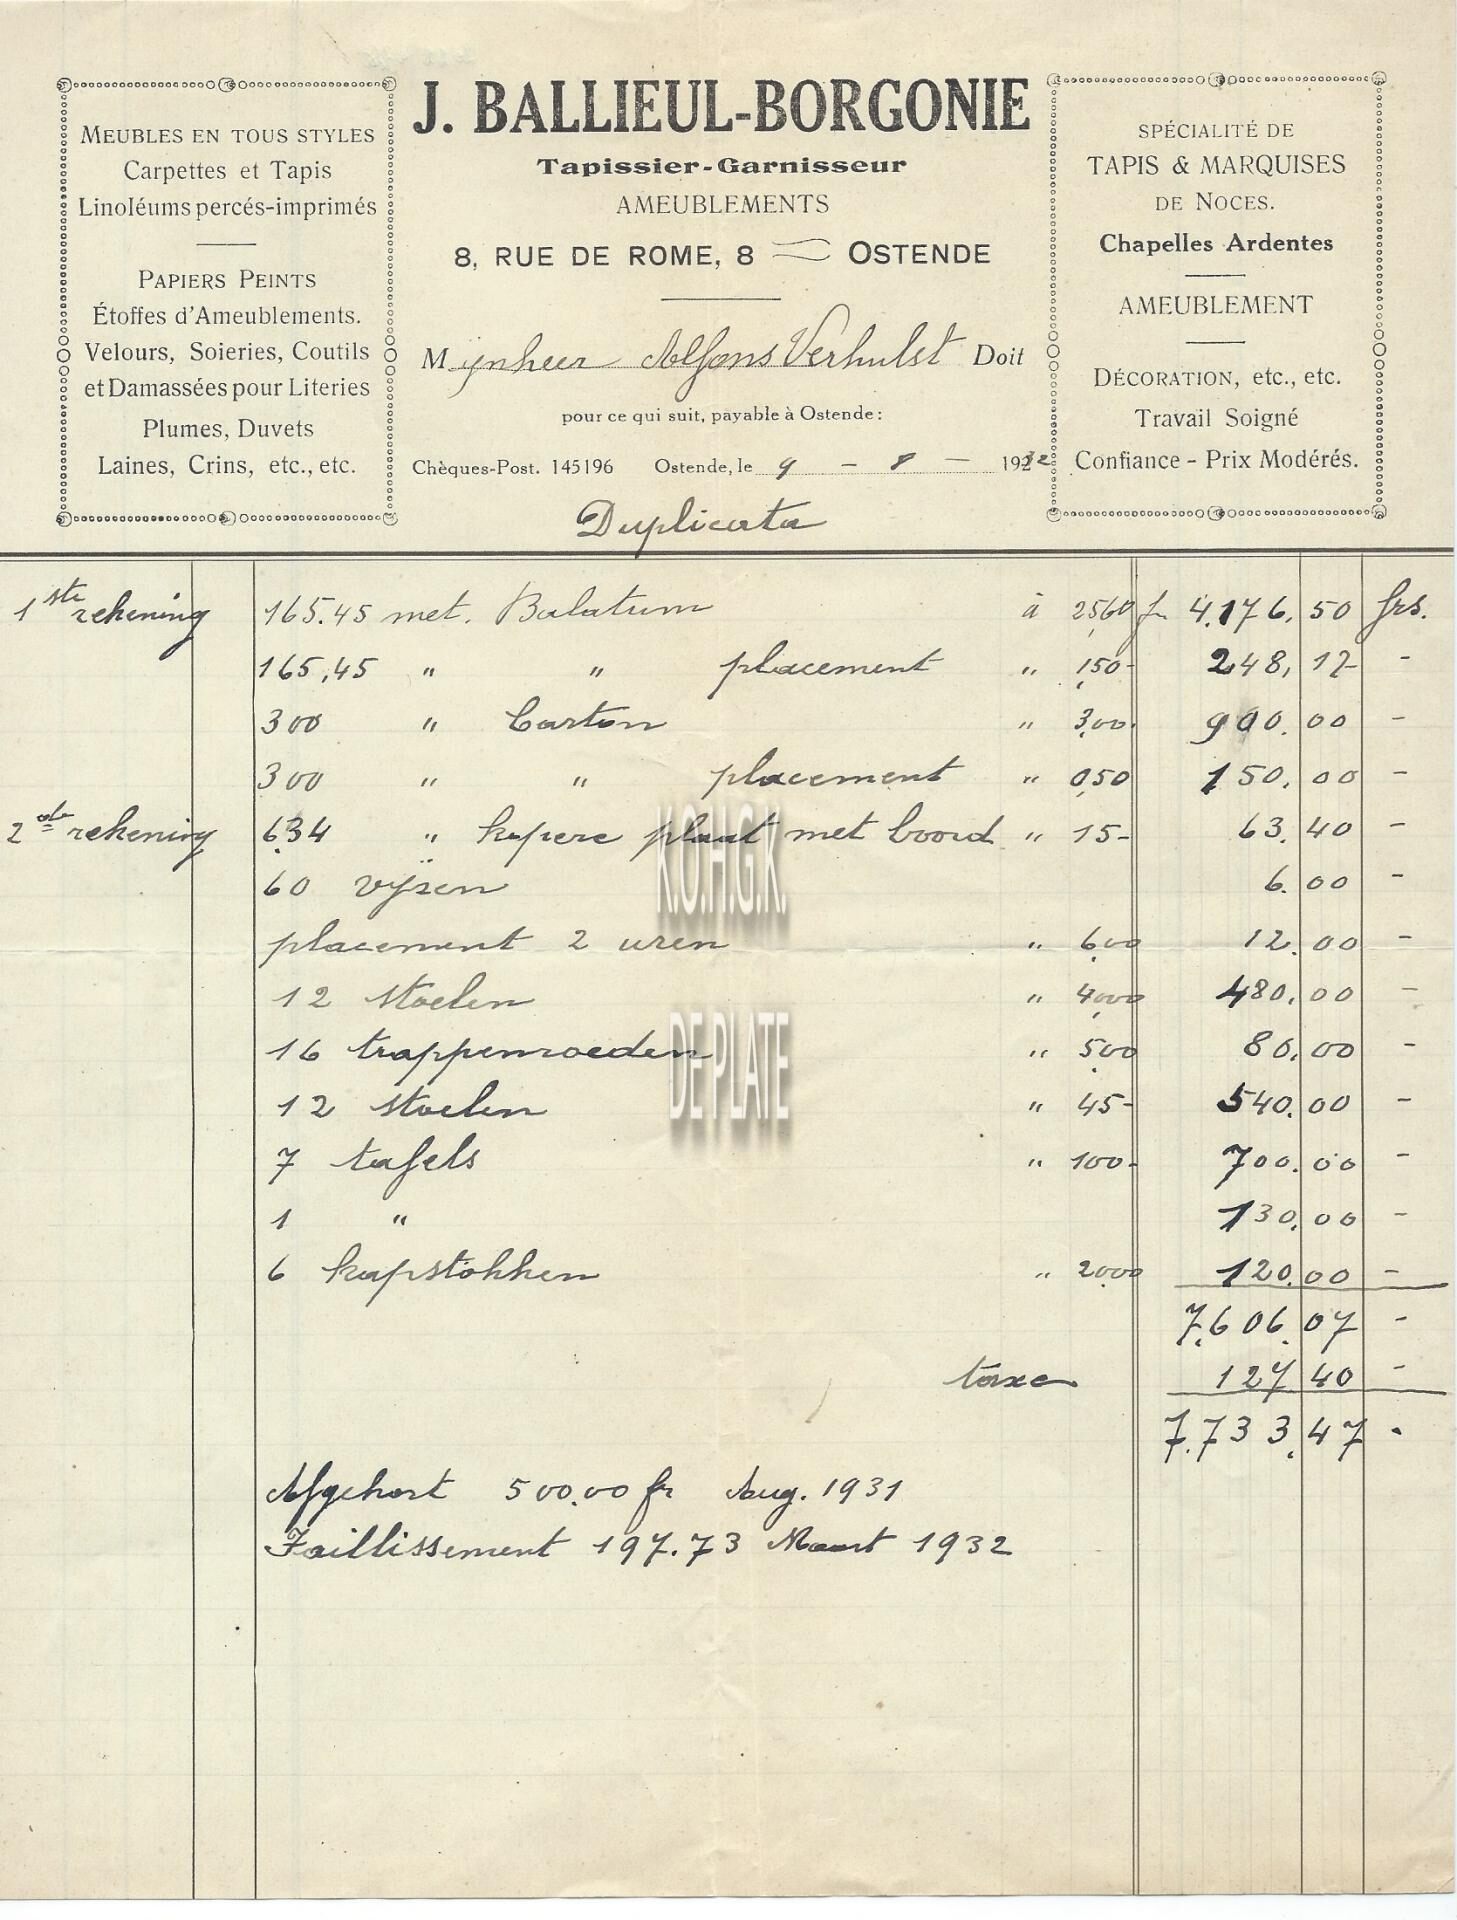 MEUBLES EN TOUS STYLES
Carpettes et Tapis
Linoléums percés-imprimés
PAPIERS PEINTS
Étoffes d'Ameublements.
Velours, Soieries, Coutils
et Damassées pour Literies
Plumes, Duvets
Laines, Crins, etc., etc.
J. BALLIEUL-BORGONIE
Tapissier-Garnisseur
AMEUBLEMENTS
8, RUE DE ROME, 8 OSTENDE
Mynheer Alfons Verhulst Doit
pour ce qui suit, payable à Ostende:
Chèques-Post. 145196 Ostende, le 9 - 8 - 1932
Duplicata
SPÉCIALITÉ DE
TAPIS & MARQUISES
DE NOCES.
Chapelles Ardentes
AMEUBLEMENT
DÉCORATION, etc., etc.
Travail Soigné
Confiance - Prix Modérés.
1ste rekening 165.45 met. Balatum à 25,60 fr 4.176,50 frs.
165,45 " " placement " 1,50- 248,17 -
300 " Carton " 3,00 900.00 -
300 " " placement " 0,50 150,00 -
2de rekening 6.34 " kopere plaat met boord " 15- 63.40 -
60 vijzen 6.00 -
placement 2 uren " 6,00 12.00 -
12 stoelen " 40,00 480,00 -
16 trappenroeden " 5,00 80,00 -
12 stoelen " 45- 540.00 -
7 tafels " 100- 700.00 -
1 " 130,00 -
6 kapstokken " 20,00 120.00 -
7.606.07 -
taxe 127 40 -
7.733.47 -
Afgekort 500.00 fr Aug. 1931
Faillissement 197.73 Maart 1932
K.O.H.G.K.
DE PLATE